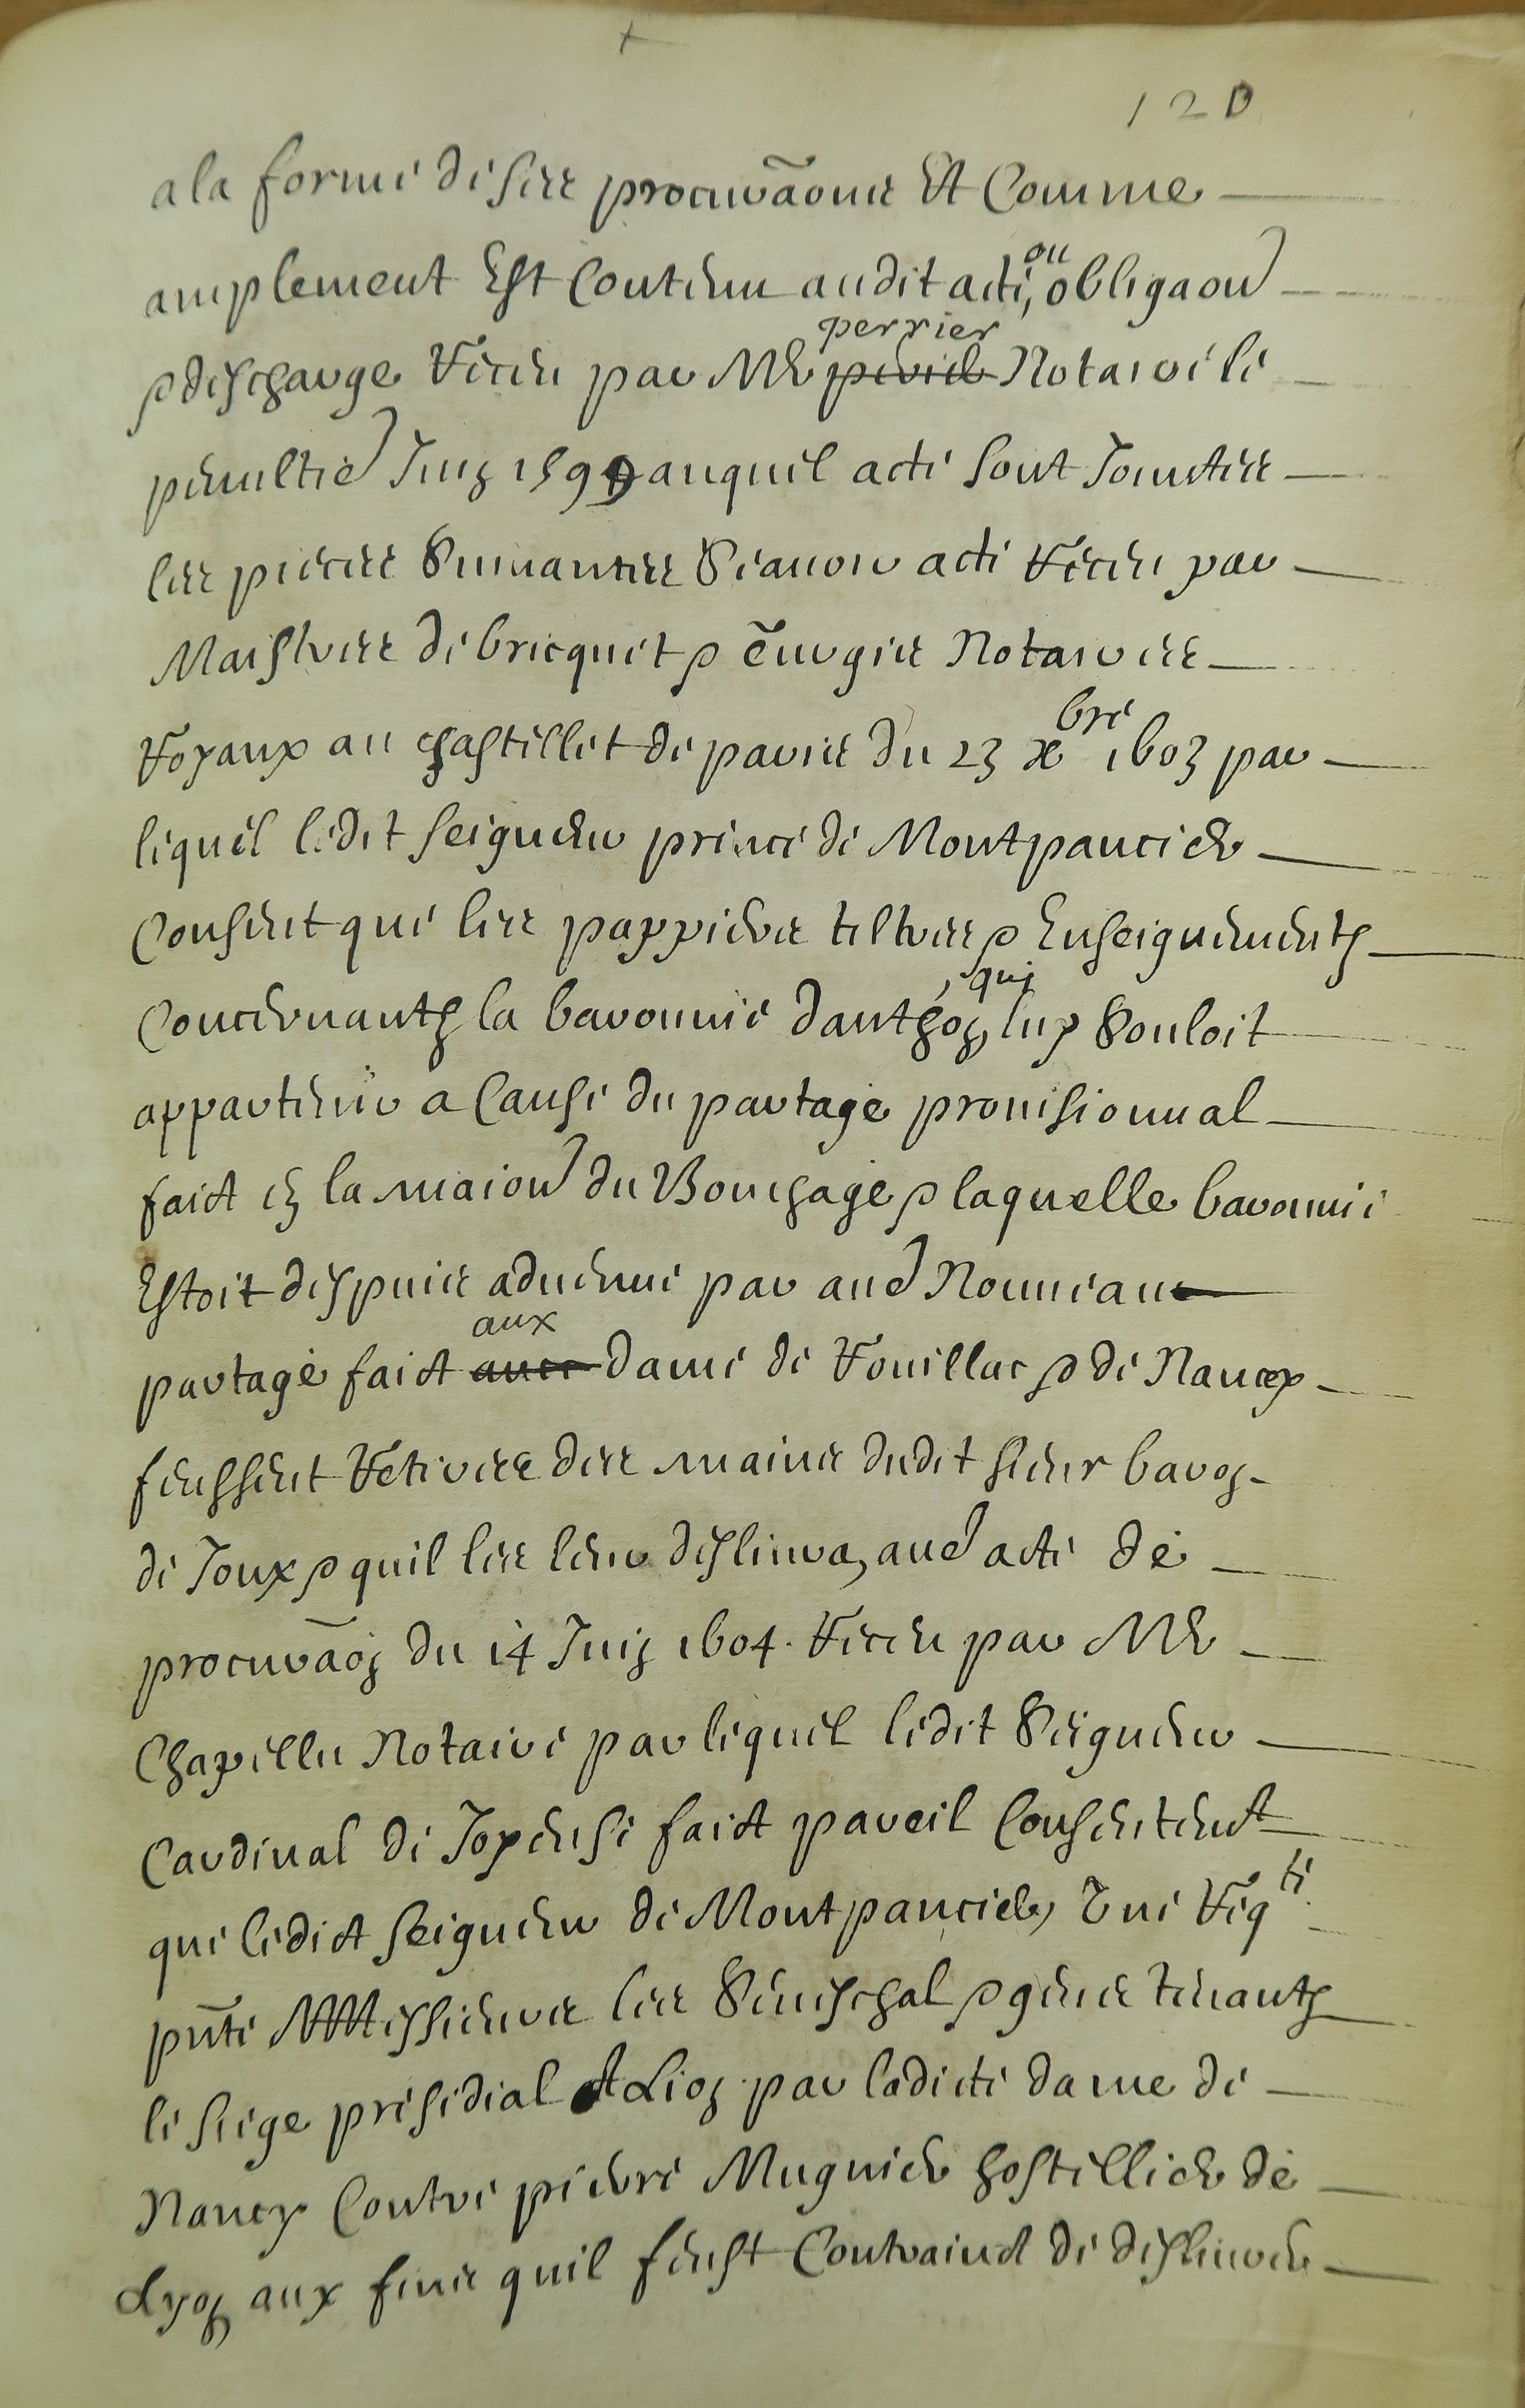 120
a la forme de ses procura͠ones Et Comme
amplement Est Contenu audit acte, ou obligaon
& descharge Receu par Me perrier Notaire le
penultie Juing 1599 auquel acte sont Joinctes
les pieces Suivantes Scavoir acte Receu par
Maistres de bricquet & Notaires
Royaux au chastellet de paris du 23 xbre 1603 par
lequel ledit seigneur prince de Montpancier
Consent que les pappiers tiltres & Enseignements
Concernants la baronnie danthon, qui luy Souloit
appartenir a Cause du partage provisionnal
faict en la maion du Bouchage & laquelle baronnie
Estoit despuis advenue par aud Nouveau
partage faict aux dame de Rouillac & de Nancy
feussent Retires des mains dudit sieur baron
de Joux & quil les leur deslivra, aud acte de
procura͠on du 14 Juin 1604. Receu par Me
Chapellu Notaire par lequel ledit Seigneur
Cardinal de Joyeuse faict pareil Consentent
que ledict seigneur de Montpancier, Une Reqte
pn͠te MMessieurs les Seneschal & gens tenants
le siege presidial A Lion par ladicte dame de
Nancy Contre pierre Mugnier hostellier de
Lyon aux fins quil feust Contrainct de deslivrer